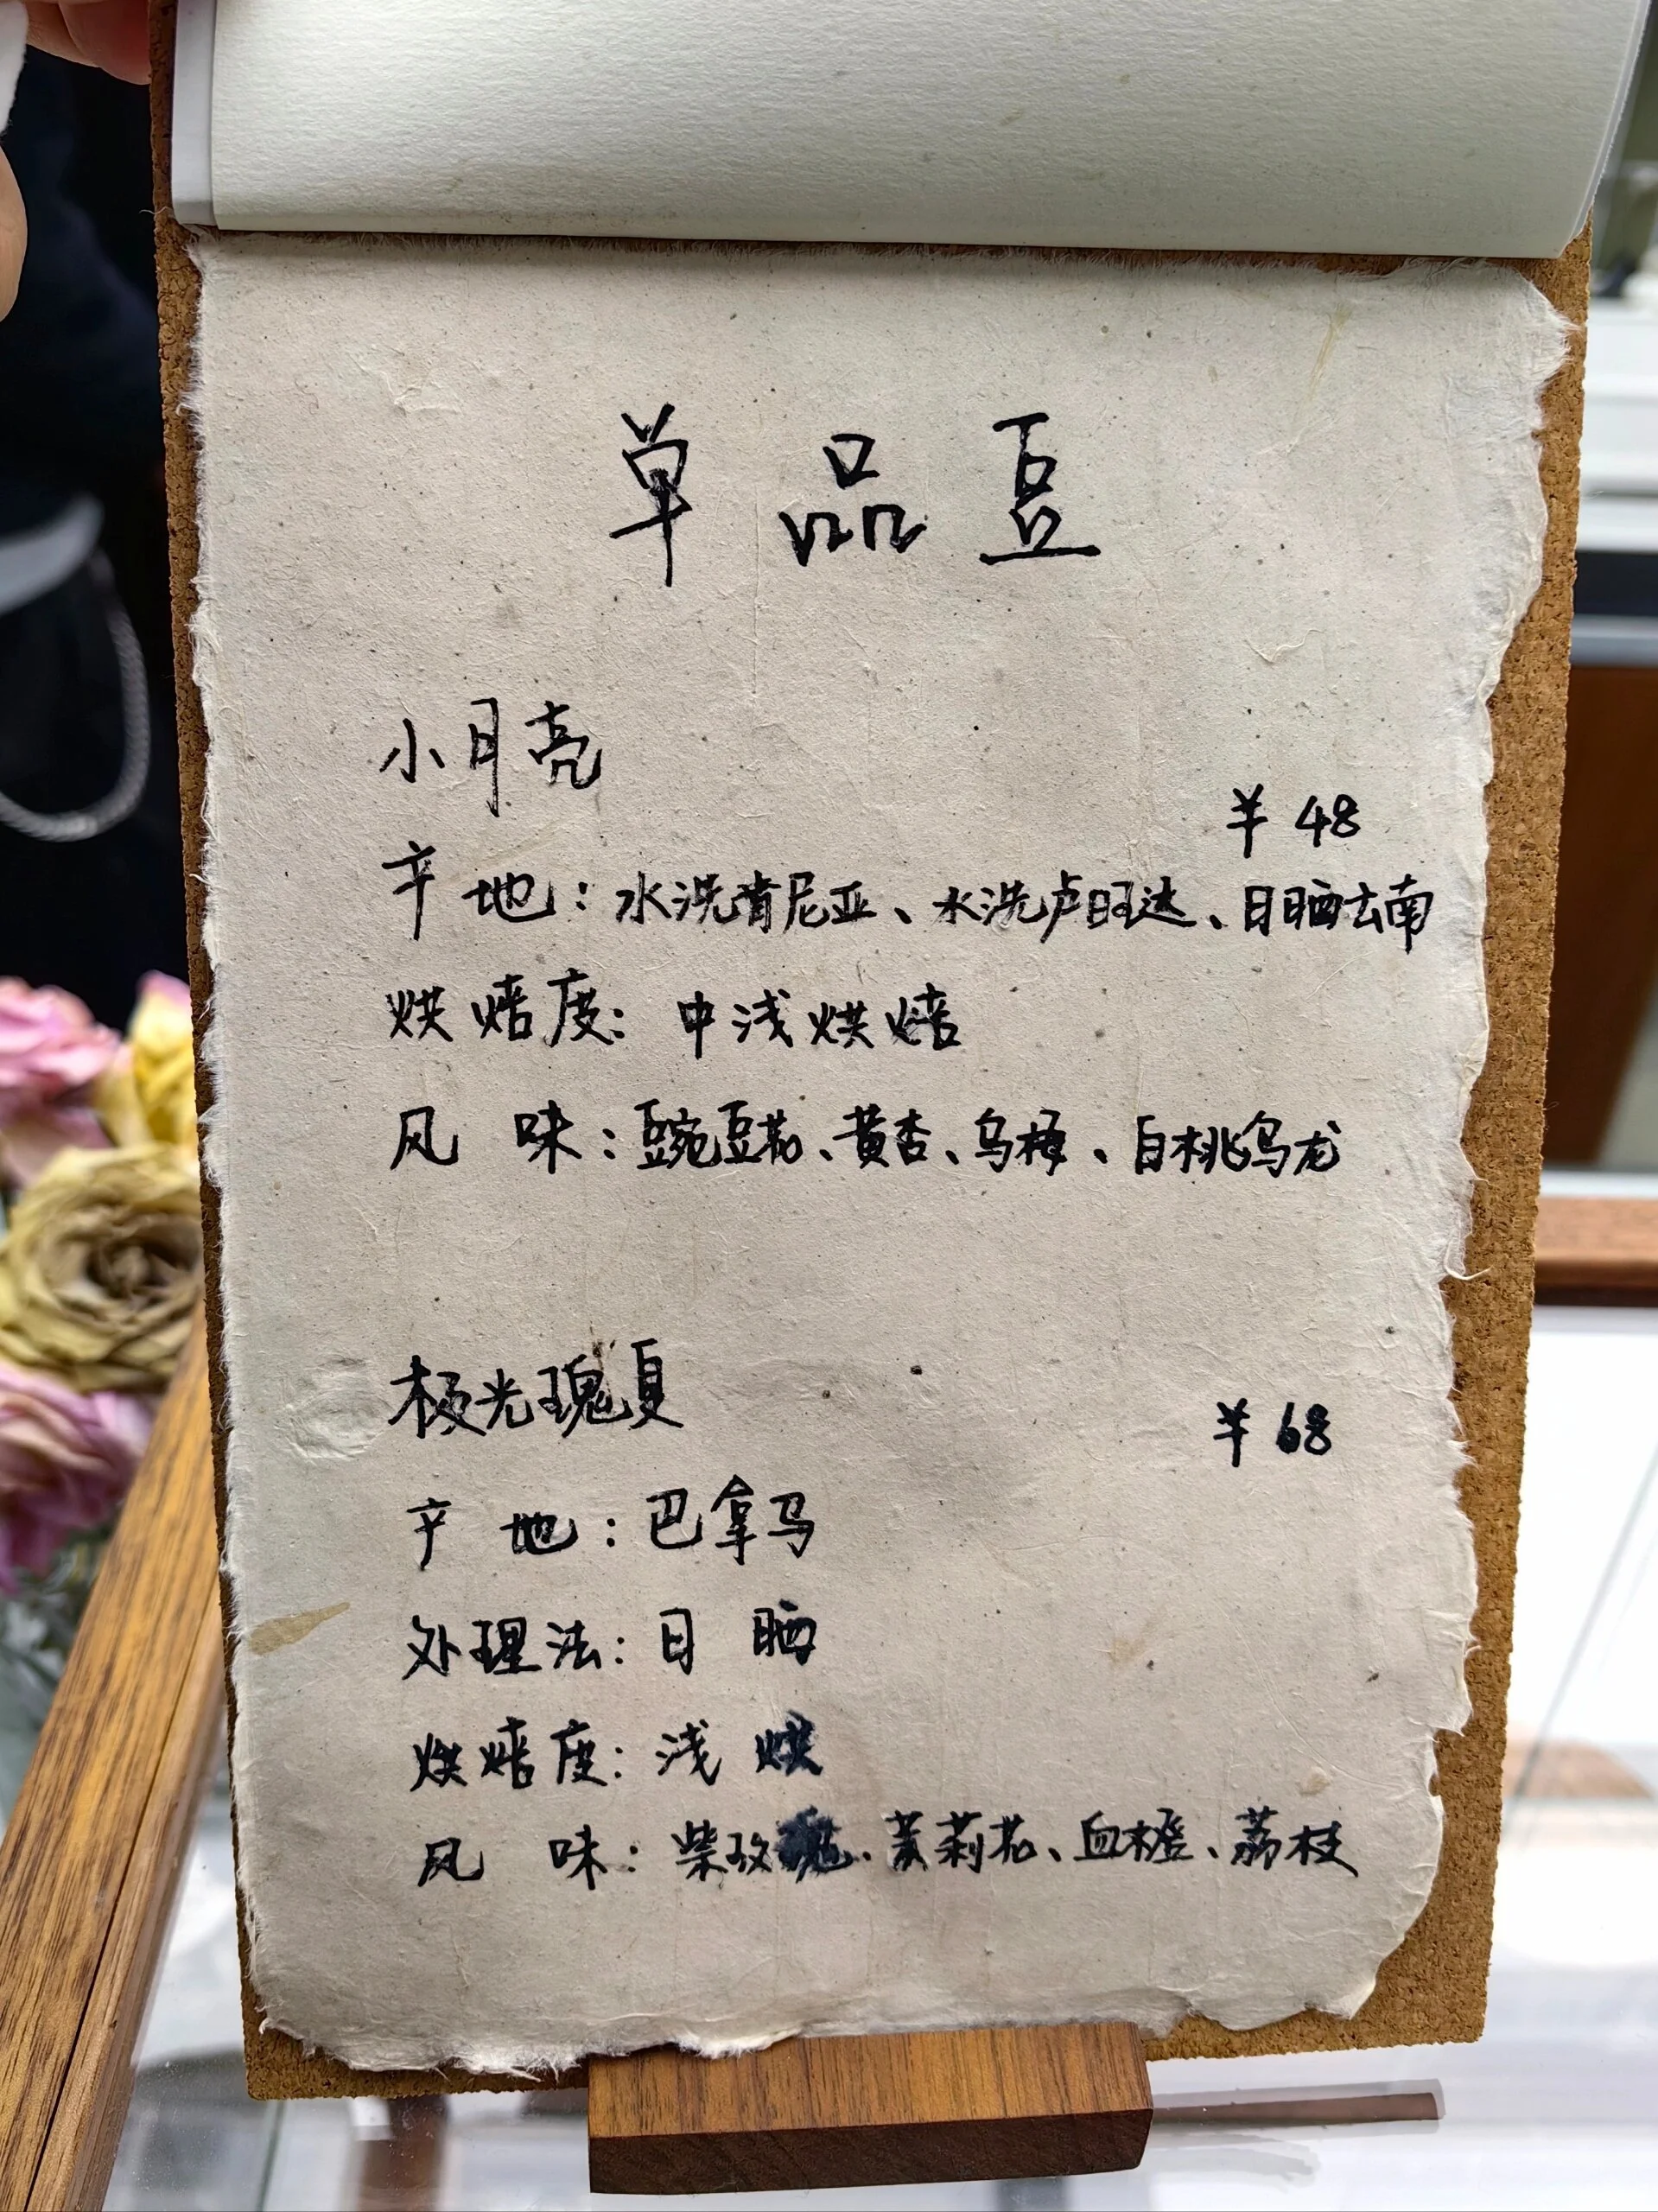 单品豆
小月亮
¥ 48
产地：水洗肯尼亚、水洗卢旺达、日晒云南
烘焙度：中浅烘焙
风味：豌豆花、黄杏、乌梅、白桃乌龙
极光瑰夏
¥ 68
产地：巴拿马
处理法：日晒
烘焙度：浅烘
风味：柴玫瑰、茉莉花、血橙、荔枝